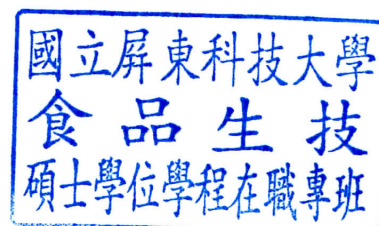 國立屏東科技大學
食品生技
碩士學位學程在職專班